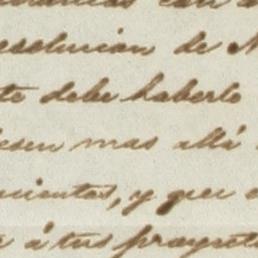 esolucion de
te debe haberlo
esen mas allá
cientos, y que
á tus proyect